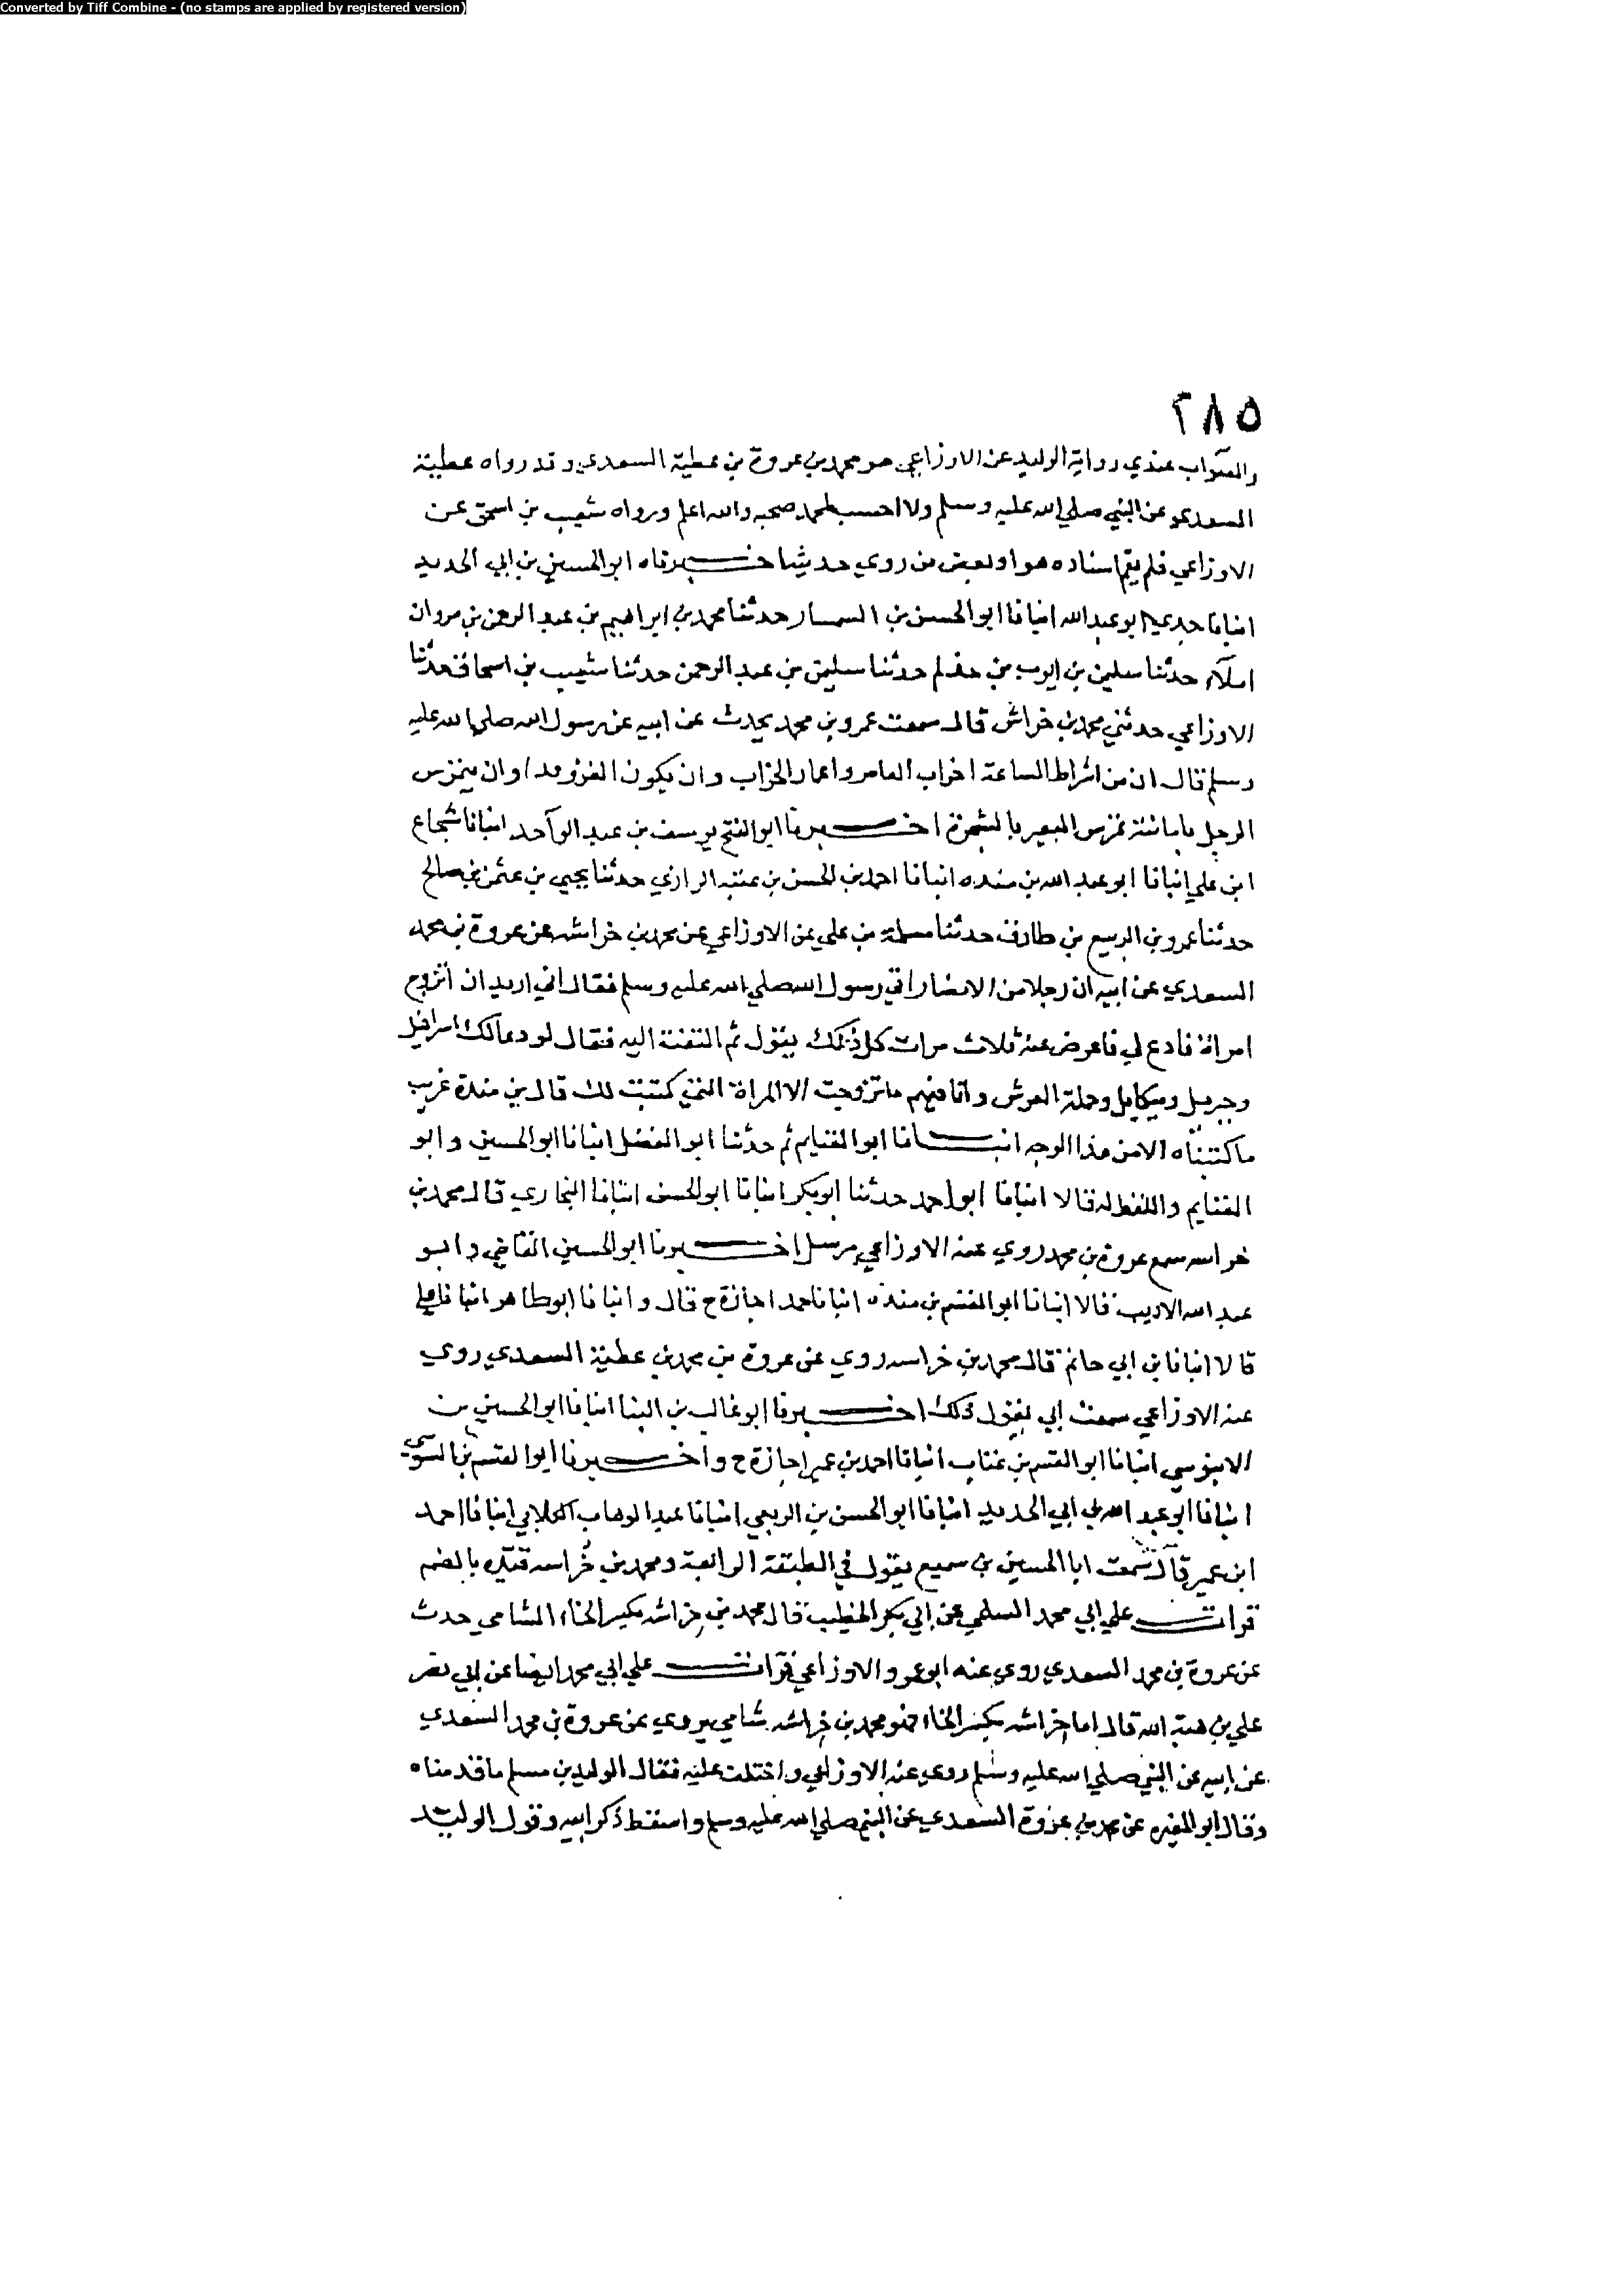 Converted by Tiff Combine - (no stamps are applied by registered version)
٢٨٥
والصواب عندي رواية الوليد عن الاوزاعي هو محمد بن عروة بن عطية السعدي وقد رواه عطية
السعدي عن النبي صلي الله عليه وسلم ولا احسب لمحمد صحبه والله اعلم ورواه شعيب بن اسحق عن
الاوزاعي فلم يقم اسناده هو او بعض من روي حديثا اخبرناه ابو الحسين بن ابي الحديد
انبانا جدي ابو عبد الله انبانا ابو الحسن بن السمسار حدثنا محمد بن ابراهيم بن عبد الرحمن بن مروان
املآء حدثنا سليمن بن ايوب بن حذلم حدثنا سليمن بن عبد الرحمن حدثنا شعيب بن اسحاق حدثنا
الاوزاعي حدثني محمد بن خراش قال سمعت عمرو بن محمد يحدث عن ابيه عن رسول الله صلي الله عليه
وسلم قال ان من اشراط الساعة اخراب العامر واعمار الخراب وان يكون الغزو مدا وان يتمرس
الرجل بامانته تمرس البعير بالشجرة اخبرنا ابو الفتح يوسف بن عبد الوآحد انبانا شجاع
ابن علي انبانا ابو عبد الله بن منده انبانا احمد بن الحسن بن عتبه الرازي حدثنا يحيي بن عثمن بن صالح
حدثنا عمرو بن الربيع بن طارق حدثنا مسلمة بن علي عن الاوزاعي عن محمد بن خراشه عن عروة بن محمد
السعدي عن ابيه ان رجلا من الانصار اتي رسول الله صلي الله عليه وسلم فقال اني اريد ان اتزوج
امراة فادع لي فاعرض عنه ثلاث مرات كل ذلك يقول ثم التفت اليه فقال لو دعا لك اسرافيل
وجبريل وميكايل وحملة العرش وانا فيهم ما تزوجت الا المراة التي كتبت لك قال بن مندة غريب
ما كتبناه الا من هذا الوجه انبانا ابو الغنايم ثم حدثنا ابو الفضل انبانا ابو الحسين وابو
الغنايم واللفظ له قالا انبانا ابو احمد حدثنا ابو بكر انبانا ابو الحسن انبانا البخاري قال محمد بن
خراسه سمع عروة بن محمد روي عنه الاوزاعي مرسل اخبرنا ابو الحسين القاضي وابو
عبد الله الاديب قالا انبانا ابو القسم بن منده انبانا حمد اجازة ح قال وانبانا ابو طاهر انبانا علي
قالا انبانا بن ابي حاتم قال محمد بن خراسه روي عن عروة بن محمد بن عطية السعدي روي
عنه الاوزاعي سمعت ابي يقول ذلك اخبرنا ابو غالب بن البنا انبانا ابو الحسين بن
الابنوسي انبانا ابو القسم بن عتاب انبانا احمد بن عمير اجازة ح واخبرنا ابو القسم بن السوسي
انبانا ابو عبد الله بن ابي الحديد انبانا ابو الحسن بن الربعي انبانا عبد الوهاب الكلابي انبانا احمد
ابن عمير قال سمعت ابا الحسين بن سميع يقول في الطبقة الرابعة ومحمد بن خُراسه قيده بالضم
قرات علي ابي محمد السلمي عن ابي بكر الخطيب قال محمد بن خراشه بكسر الخاء الشامي حدث
عن عروة بن محمد السعدي روي عنه ابو عمرو الاوزاعي قرات علي ابي محمد ايضا عن ابي نصر
علي بن هبة الله قال اما خراشه بكسر الخاء فهو محمد بن خراشه شامي يروي عن عروة بن محمد السعدي
عن ابيه عن النبي صلي الله عليه وسلم روي عنه الاوزاعي واختلف عليه فقال الوليد بن مسلم ما قدمناه
وقال ابو المغيره عن محمد بن عروة السعدي عن النبي صلي الله عليه وسلم واسقط ذكر ابيه وقول الوليد